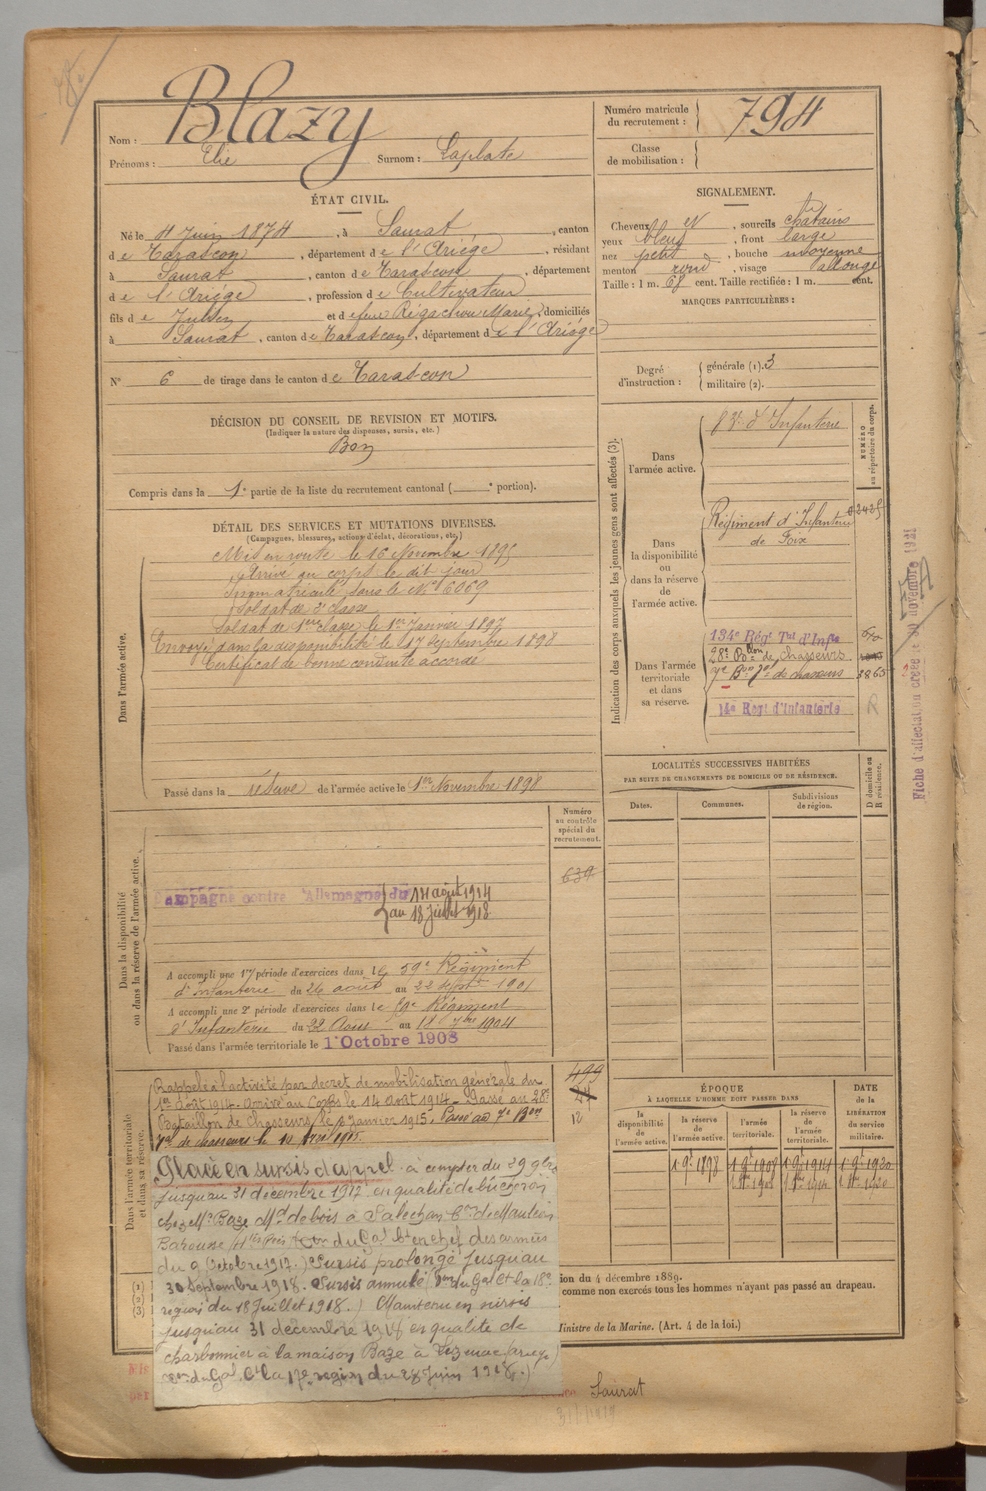 Nom : Blazy
Prénoms : Elie Surnom : Laplate
Numéro matricule du recrutement : 794
Classe de mobilisation :
ÉTAT CIVIL.
Né le 4 Juin 1874, à Saurat, canton
de Tarascon, département de l'Ariège, résidant
à Saurat, canton de Tarascon, département
de l'Ariège, profession de Cultivateur
fils de Julien et de feue Régachou Marie, domiciliés
à Saurat, canton de Tarascon, département de l'Ariége
N° 6 de tirage dans le canton de Tarascon
SIGNALEMENT.
Cheveux et, sourcils chatains
yeux bleus, front large
nez petit, bouche moyenne
menton rond, visage allongé
Taille : 1 m. 68 cent. Taille rectifiée : 1 m. cent.
MARQUES PARTICULIÈRES :
Degré d'instruction : générale (1). 3
militaire (2).
DÉCISION DU CONSEIL DE REVISION ET MOTIFS.
(Indiquer la nature des dispenses, sursis, etc.)
Bon
Compris dans la 1e partie de la liste du recrutement cantonal ( e portion).
DÉTAIL DES SERVICES ET MUTATIONS DIVERSES.
(Campagnes, blessures, actions d'éclat, décorations, etc.)
Dans l'armée active.
Mis en route le 16 Novembre 1895
Arrivé au corps le dit jour
Immatriculé sous le N° 6069
Soldat de 2e classe
Soldat de 1ere classe le 1er Janvier 1897
Envoyé dans la disponibilité le 17 Septembre 1898
Certificat de bonne conduite accordé
Passé dans la réserve de l'armée active le 1er Novembre 1898
Indication des corps auxquels les jeunes gens sont affectés (3).
NUMÉRO au répertoire du corps.
Dans l'armée active.
Dans la disponibilité ou dans la réserve de l'armée active.
Régiment d'Infanterie
de Foix
Dans l'armée territoriale et dans sa réserve.
134e Régt Tal d'Infie
28e Bllon de chasseurs
7e Bon Ter de chasseurs 3865
14e Regt d'Infanterie
R
Fiche d'affectation créée le novembre 1921
LOCALITÉS SUCCESSIVES HABITÉES
PAR SUITE DE CHANGEMENTS DE DOMICILE OU DE RÉSIDENCE.
Dates. Communes. Subdivisions de région. D domicile ou R résidence.
Numéro au contrôle spécial du recrutement.
639
Dans la disponibilité ou dans la réserve de l'armée active.
Campagne contre l'Allemagne du 14 août 1914
au 18 Juillet 1918
A accompli une 1re période d'exercices dans le 59e Régiment
d'infanterie du 26 août au 22 septe 1901
A accompli une 2e période d'exercices dans le 59e Régiment
d'Infanterie du 22 Août au 18 7bre 1904
Passé dans l'armée territoriale le 1er Octobre 1908
Dans l'armée territoriale et dans sa réserve.
Rappelé à l'activité par décret de mobilisation générale du
1er août 1914. Arrivé au Corps le 14 Août 1914. Passé au 28e
Bataillon de Chasseurs le Janvier 1915. Passé au 7e Bon
Ter de chasseurs le Avril 1915.
499
12
Placé en sursis d'appel à compter du 29 9bre
jusqu'au 31 décembre 1917 en qualité de bucheron
chez Mr Baze Md de bois à Salechan Con de Mauléon
Barousse (Htes Pyr.) du Gal Ct en chef des armées
du 9 Octobre 1917. ) Sursis prolongé jusqu'au
30 Septembre 1918. Sursis annulé ( du Gal Ct la 18e
région du 18 Juillet 1918. ) Maintenu en sursis
jusqu'au 31 décembre 1918 en qualité de
charbonnier à la maison Baze à (Ariège)
du Gal Ct la 17e région du 28 Juin 1918.)
ÉPOQUE
À LAQUELLE L'HOMME DOIT PASSER DANS
la disponibilité de l'armée active. la réserve de l'armée active. l'armée territoriale. la réserve de l'armée territoriale.
DATE de la LIBÉRATION du service militaire.
1 9e 1898 1 9e 1908 1 9e 1914 1 9e 1920
(1)
(2)
(3)
ion du 4 décembre 1889.
comme non exercés tous les hommes n'ayant pas passé au drapeau.
Ministre de la Marine. (Art. 4 de la loi.)
Saurat